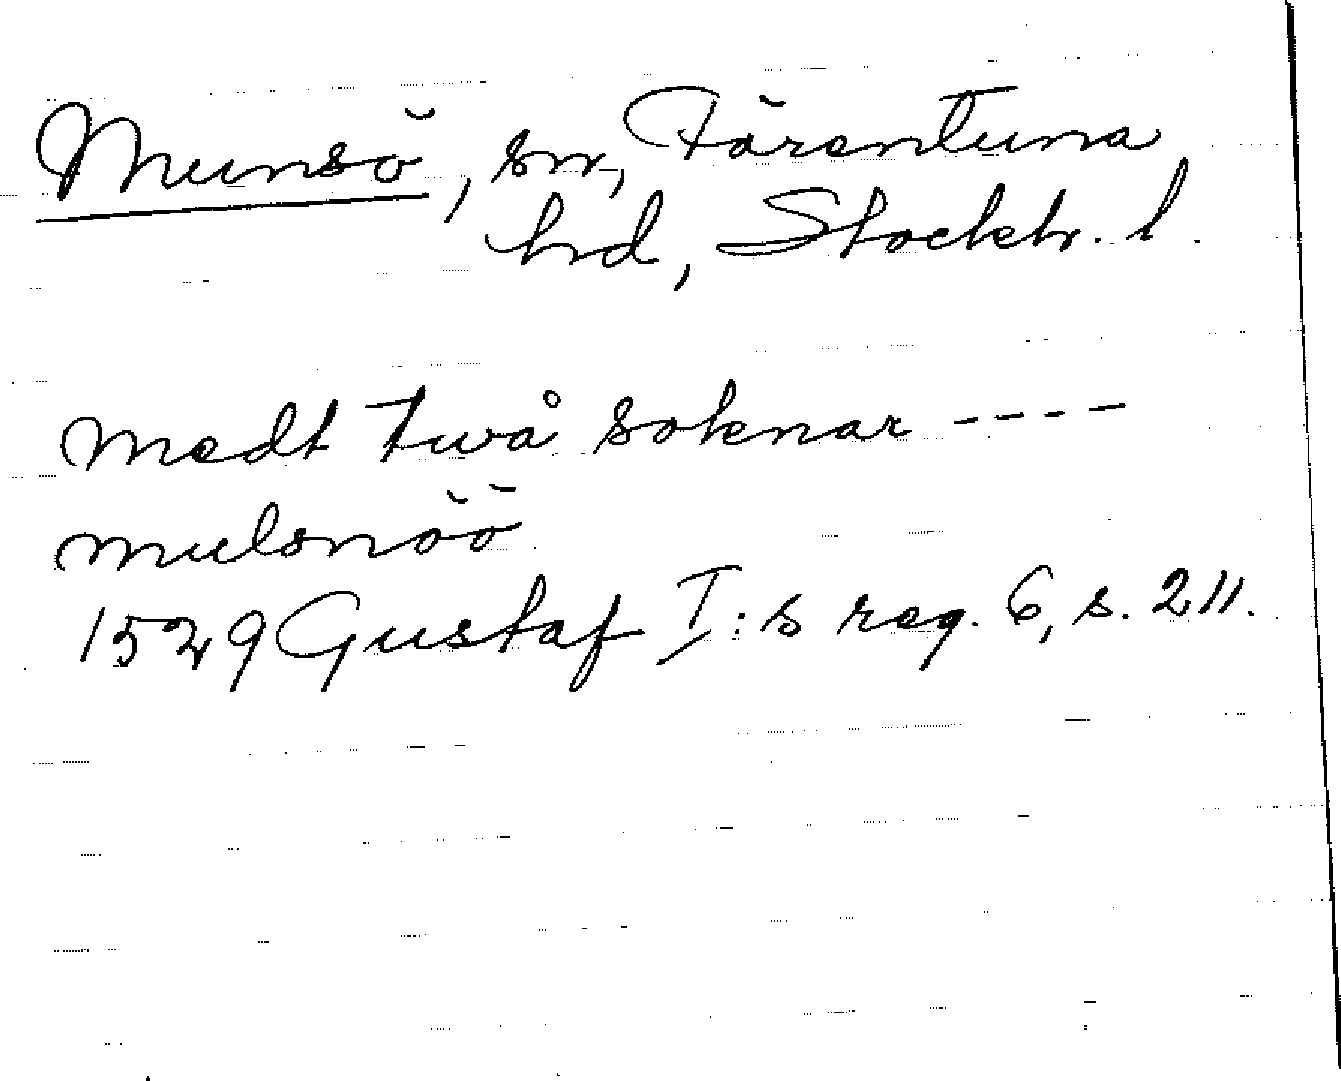 Munsö, sn, Färentuna
hd, Stockh. l.
medt twå soknar ----
mulsnöö
1529 Gustaf I:s reg. 6, s. 211.